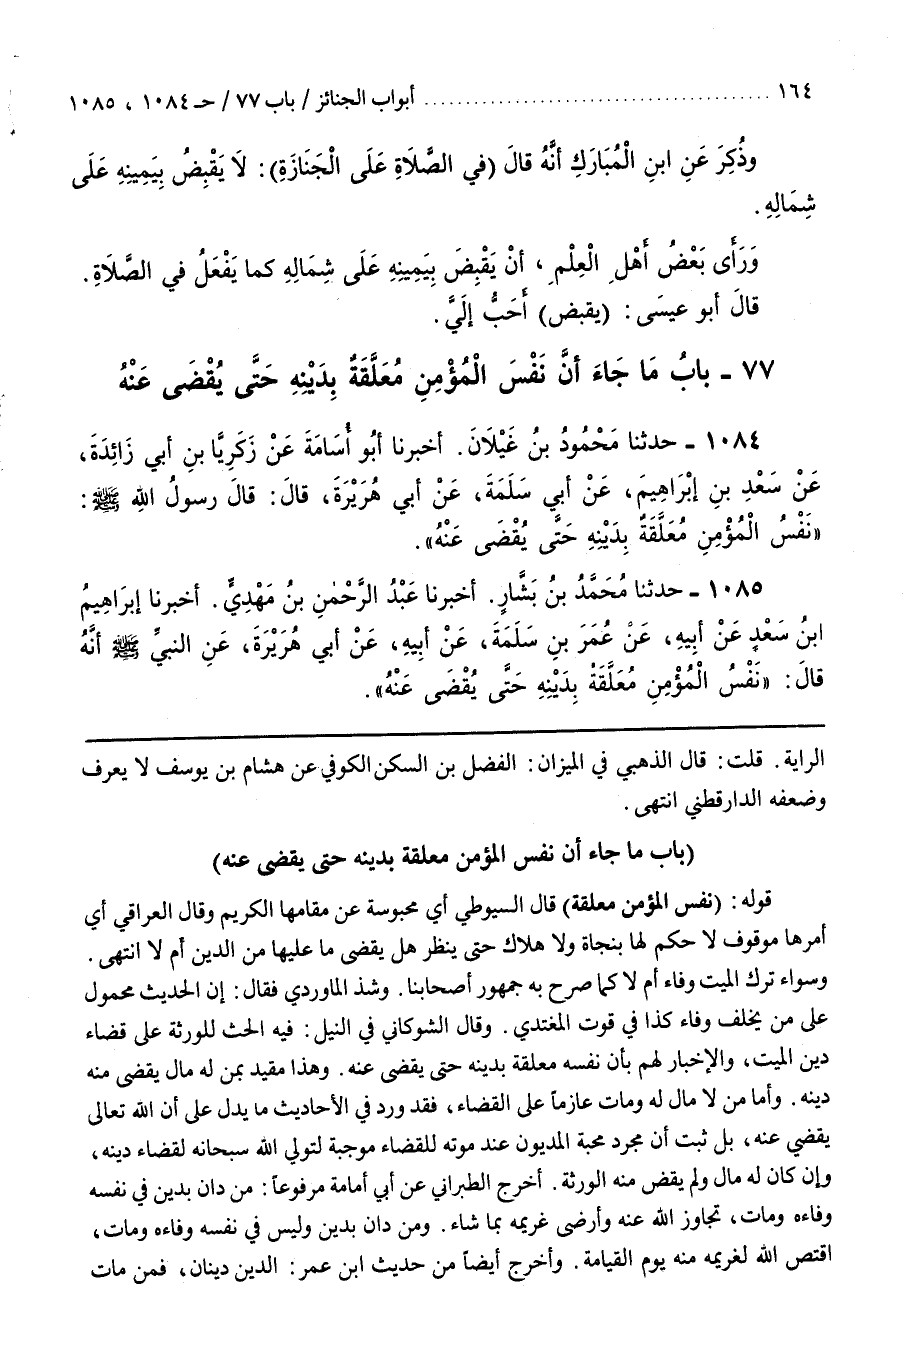 ١٦٤ ........................................ أبواب الجنائز / باب ٧٧ / حـ ١٠٨٤ ، ١٠٨٥
وذُكِرَ عَنِ ابنِ الْمُبَارَكِ أنَّهُ قالَ (في الصَّلَاةِ عَلَى الْجَنَازَةِ): لَا يَقْبِضُ بِيَمِينِهِ عَلَى
شِمَالِهِ.
وَرَأَى بَعْضُ أَهْلِ الْعِلْمِ، أنْ يَقْبِضَ بِيَمِينِهِ عَلَى شِمَالِهِ كما يَفْعَلُ في الصَّلَاةِ.
قالَ أبو عيسَى: (يقبض) أَحَبُّ إلَيَّ.
٧٧ - بابُ مَا جَاءَ أنَّ نَفْسَ الْمُؤْمِنِ مُعَلَّقَةٌ بِدَيْنِهِ حَتَّى يُقْضَى عَنْهُ
١٠٨٤ - حدثنا مَحْمُودُ بنُ غَيْلَانَ. أخبرنا أبُو أُسَامَةَ عَنْ زَكَرِيَّا بنِ أبي زَائِدَةَ،
عَنْ سَعْدِ بنِ إبْرَاهِيمَ، عَنْ أبي سَلَمَةَ، عَنْ أبي هُرَيْرَةَ، قالَ: قالَ رسولُ اللهِ ﷺ:
«نَفْسُ الْمُؤْمِنِ مُعَلَّقَةٌ بِدَيْنِهِ حَتَّى يُقْضَى عَنْهُ».
١٠٨٥ - حدثنا مُحَمَّدُ بنُ بَشَّارٍ. أخبرنا عَبْدُ الرَّحْمٰنِ بنُ مَهْدِيٍّ. أخبرنا إبرَاهِيمُ
ابنُ سَعْدٍ عَنْ أبِيهِ، عَنْ عُمَرَ بنِ سَلَمَةَ، عَنْ أبِيهِ، عَنْ أبي هُرَيْرَةَ، عَنِ النبيِّ ﷺ أنَّهُ
قالَ: «نَفْسُ الْمُؤْمِنِ مُعَلَّقَةٌ بِدَيْنِهِ حَتَّى يُقْضَى عَنْهُ».
الراية. قلت: قال الذهبي في الميزان: الفضل بن السكن الكوفي عن هشام بن يوسف لا يعرف
وضعفه الدارقطني انتهى.
(باب ما جاء أن نفس المؤمن معلقة بدينه حتى يقضى عنه)
قوله: (نفس المؤمن معلقة) قال السيوطي أي محبوسة عن مقامها الكريم وقال العراقي أي
أمرها موقوف لا حكم لها بنجاة ولا هلاك حتى ينظر هل يقضى ما عليها من الدين أم لا انتهى.
وسواء ترك الميت وفاء أم لا كما صرح به جمهور أصحابنا. وشذ الماوردي فقال: إن الحديث محمول
على من يخلف وفاء كذا في قوت المغتدي. وقال الشوكاني في النيل: فيه الحث للورثة على قضاء
دين الميت، والإخبار لهم بأن نفسه معلقة بدينه حتى يقضى عنه. وهذا مقيد بمن له مال يقضى منه
دينه. وأما من لا مال له ومات عازماً على القضاء، فقد ورد في الأحاديث ما يدل على أن الله تعالى
يقضي عنه، بل ثبت أن مجرد محبة المديون عند موته للقضاء موجبة لتولي الله سبحانه لقضاء دينه،
وإن كان له مال ولم يقض منه الورثة. أخرج الطبراني عن أبي أمامة مرفوعاً: من دان بدين في نفسه
وفاءه ومات، تجاوز الله عنه وأرضى غريمه بما شاء. ومن دان بدين وليس في نفسه وفاءه ومات،
اقتص الله لغريمه منه يوم القيامة. وأخرج أيضاً من حديث ابن عمر: الدين دينان، فمن مات